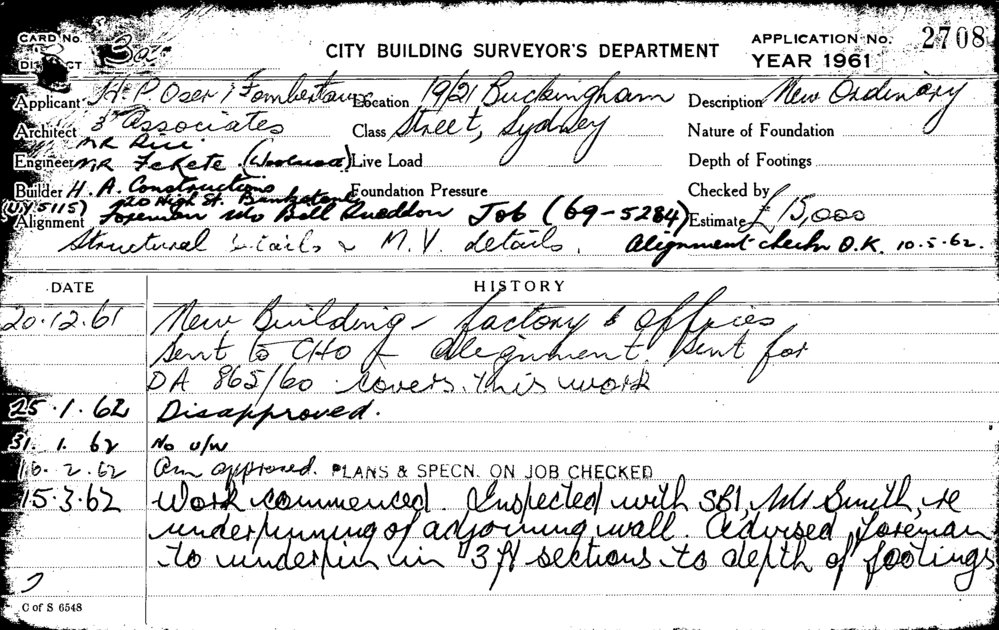 CARD No. 3a
CITY BUILDING SURVEYOR'S DEPARTMENT
APPLICATION No. 2708
YEAR 1961
Applicant H. P. Oser, Fombertaux Location 19/21 Buckingham Description New Ordinary
Architect & Associates Class Street, Sydney Nature of Foundation
Engineer MR Fekete (Woolacott) Live Load Depth of Footings
Builder H. A. Constructions Foundation Pressure Checked by
(UY5115) 120 High St. Bankstown
Alignment Foreman Mr Bell Sneddon Job (69-5284) Estimate £15,000
Structural details & M.V. details. Alignment checkn O.K. 10.5.62.
DATE HISTORY
20.12.61 New Building - factory & offices
sent to CHO & alignment. Sent for
DA 865/60 covers this work
25.1.62 Disapproved.
31.1.62 No u/w
16.2.62 Am approved. PLANS & SPECN. ON JOB CHECKED
15.3.62 Work commenced. Inspected with SBI, Mr Smith, re
underpinning of adjoining wall. Advised foreman
to underpin in 3 ft sections to depth of footings
C of S 6548